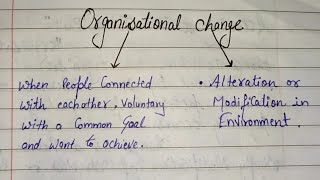 Organisational change
when People Connected
with eachother. Voluntary
with a Common Goal
and want to achieve.
• Alteration or
Modification in
Environment.